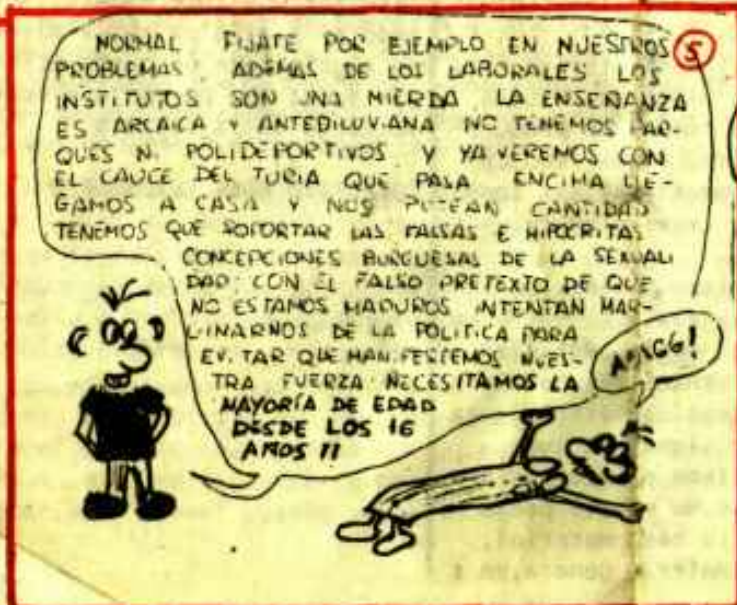 NORMAL FIJATE POR EJEMPLO EN NUESTROS
5
PROBLEMAS. ADEMAS DE LOS LABORALES LOS
INSTITUTOS SON UNA MIERDA LA ENSEÑANZA
ES ARCAICA Y ANTEDILUVIANA NO TENEMOS PAR-
QUES NI POLIDEPORTIVOS Y YA VEREMOS CON
EL CAUCE DEL TURIA QUE PASA ENCIMA LLE-
GAMOS A CASA Y NOS PUTEAN CANTIDAD
TENEMOS QUE SOPORTAR LAS FALSAS E HIPOCRITAS
CONCEPCIONES BURGUESAS DE LA SEXUALI
DAD: CON EL FALSO PRETEXTO DE QUE
NO ESTAMOS MADUROS INTENTAN MAR-
GINARNOS DE LA POLITICA PARA
EVITAR QUE MANIFESTEMOS NUES-
TRA FUERZA NECESITAMOS LA
MAYORÍA DE EDAD
DESDE LOS 16
AÑOS !!